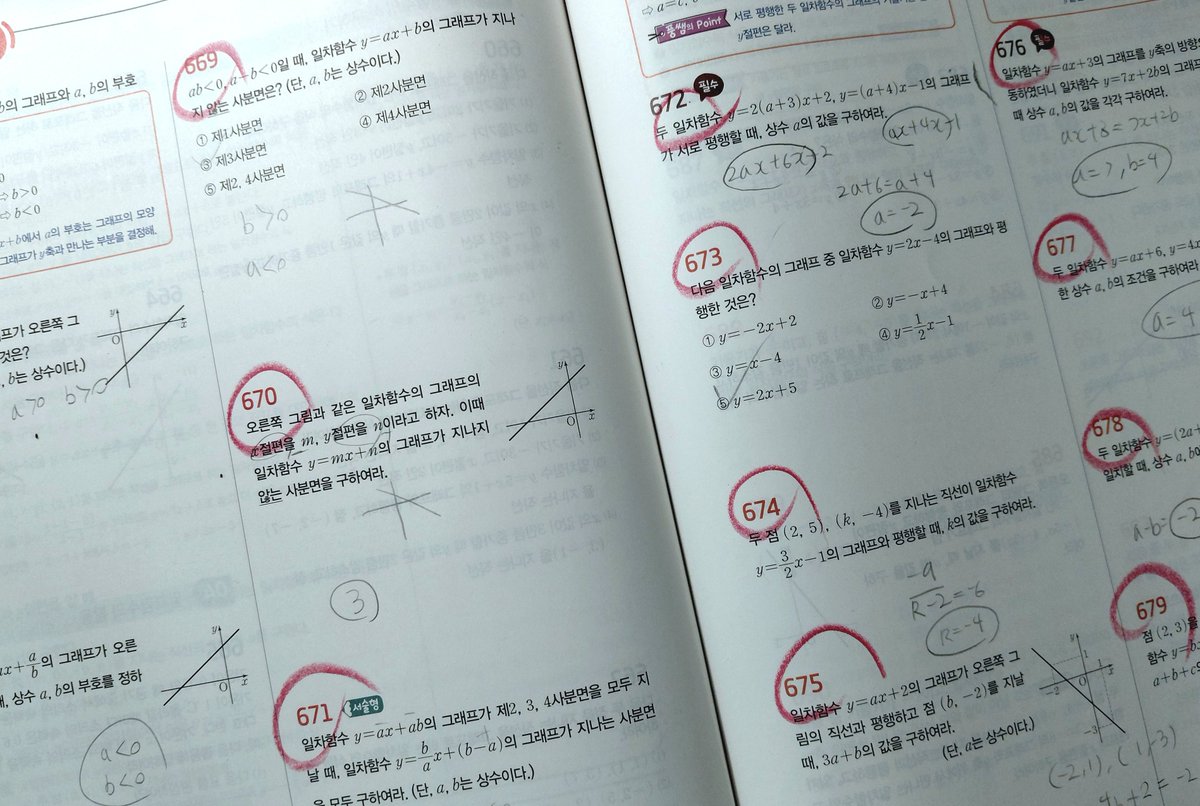 b의 그래프와 a, b의 부호
⇨ b>0
⇨ b<0
x+b에서 a의 부호는 그래프의 모양
그래프가 y축과 만나는 부분을 결정해.
프가 오른쪽 그
것은?
b는 상수이다.)
a>0 b>0
y
O
x
ax+a/b의 그래프가 오른
때, 상수 a, b의 부호를 정하
y
O
x
a<0
b<0
669
ab<0, a-b<0일 때, 일차함수 y=ax+b의 그래프가 지나
지 않는 사분면은? (단, a, b는 상수이다.)
① 제1사분면
② 제2사분면
③ 제3사분면
④ 제4사분면
⑤ 제2, 4사분면
b>0
a<0
670
오른쪽 그림과 같은 일차함수의 그래프의
x절편을 m, y절편을 n이라고 하자. 이때
일차함수 y=mx+n의 그래프가 지나지
않는 사분면을 구하여라.
y
O
x
3
671 서술형
일차함수 y=ax+ab의 그래프가 제2, 3, 4사분면을 모두 지
날 때, 일차함수 y=b/a x+(b-a)의 그래프가 지나는 사분면
을 모두 구하여라. (단, a, b는 상수이다.)
풍쌤의 Point
서로 평행한 두 일차함수의 그래프의 기울기는
y절편은 달라.
672 필수
두 일차함수 y=2(a+3)x+2, y=(a+4)x-1의 그래프
가 서로 평행할 때, 상수 a의 값을 구하여라.
ax+4x-1
2ax+6x+2
2a+6=a+4
a=-2
673
다음 일차함수의 그래프 중 일차함수 y=2x-4의 그래프와 평
행한 것은?
① y=-2x+2
② y=-x+4
③ y=x-4
④ y=1/2 x-1
⑤ y=2x+5
674
두 점 (2, 5), (k, -4)를 지나는 직선이 일차함수
y=3/2 x-1의 그래프와 평행할 때, k의 값을 구하여라.
-9
k-2=-6
k=-4
675
일차함수 y=ax+2의 그래프가 오른쪽 그
림의 직선과 평행하고 점 (b, -2)를 지날
때, 3a+b의 값을 구하여라.
(단, a는 상수이다.)
y
1
1
-2
O
x
-3
(-2,1), (1-3)
+2=-2
676 필수
일차함수 y=ax+3의 그래프를 y축의 방향으
동하였더니 일차함수 y=7x+2b의 그래프
때 상수 a, b의 값을 각각 구하여라.
ax+8=7x+2b
a=7, b=4
677
두 일차함수 y=ax+6, y=4x
한 상수 a, b의 조건을 구하여라
a=4
678
두 일차함수 y=(2a+
일치할 때, 상수 a, b에
a-b=-2
679
점 (2, 3)을
함수 y=b
a+b+c의